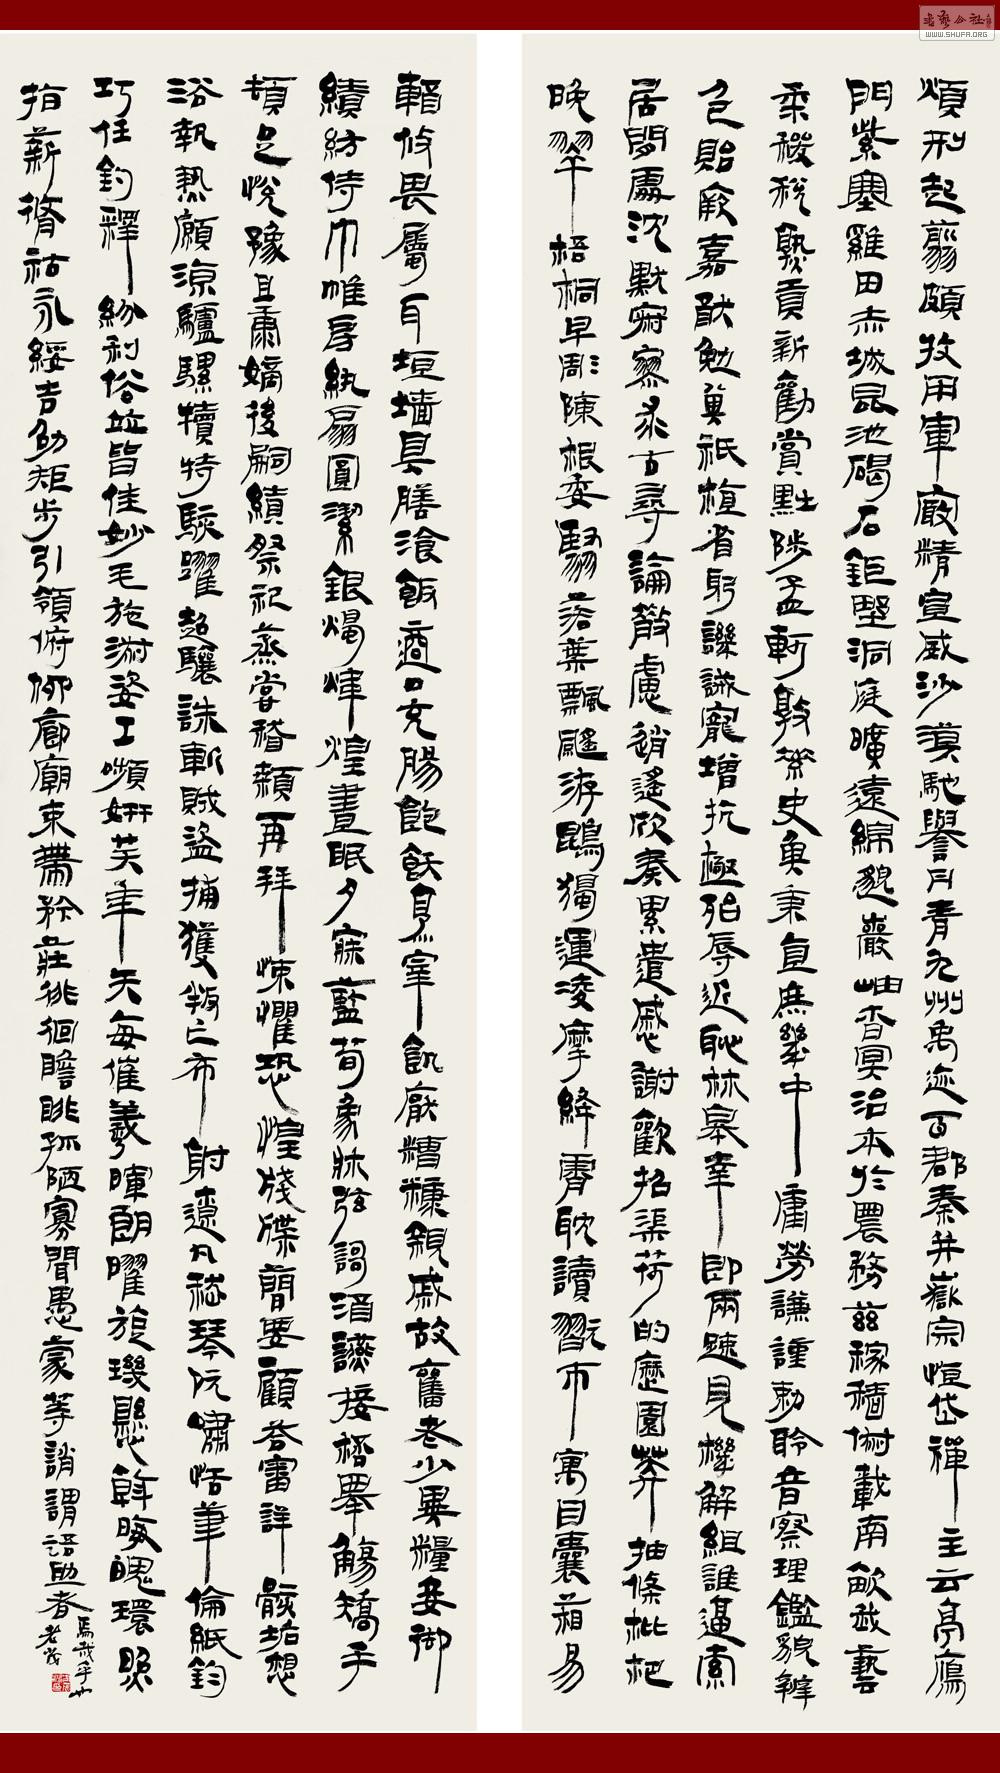 書藝公社
WWW.SHUFA.ORG
煩刑起翦頗牧用軍最精宣威沙漠馳譽丹青九州禹迹百郡秦并嶽宗恒岱禪主云亭鴈
門紫塞雞田赤城昆池碣石鉅野洞庭曠遠綿邈巖岫杳冥治本於農務茲稼穡俶載南畝我藝
黍稷稅熟貢新勸賞黜陟孟軻敦素史魚秉直庶幾中庸勞謙謹勅聆音察理鑑貌辨
色貽厥嘉猷勉其祗植省躬譏誡寵增抗極殆辱近恥林皋幸即兩疏見機解組誰逼索
居閒處沈默寂寥求古尋論散慮逍遙欣奏累遣慼謝歡招渠荷的歷園莽抽條枇杷
晚翠梧桐早彫陳根委翳落葉飄颻游鵾獨運凌摩絳霄耽讀翫市寓目囊箱易
輶攸畏屬耳垣墻具膳飡飯適口充腸飽飫烹宰飢厭糟糠親戚故舊老少異糧妾御
績紡侍巾帷房紈扇圓潔銀燭煒煌晝眠夕寐藍筍象牀弦歌酒讌接桮舉觴矯手
頓足悅豫且康嫡後嗣續祭祀蒸嘗稽顙再拜悚懼恐惶牋牒簡要顧答審詳骸垢想
浴執熱願涼驢騾犢特駭躍超驤誅斬賊盜捕獲叛亡布射遼丸嵇琴阮嘯恬筆倫紙鈞
巧任釣釋紛利俗並皆佳妙毛施淑姿工嚬妍笑年矢每催羲暉朗曜旋璣懸斡晦魄環照
指薪脩祜永綏吉劭矩步引領俯仰廊廟束帶矜莊徘徊瞻眺孤陋寡聞愚蒙等誚謂語助者
焉哉乎也